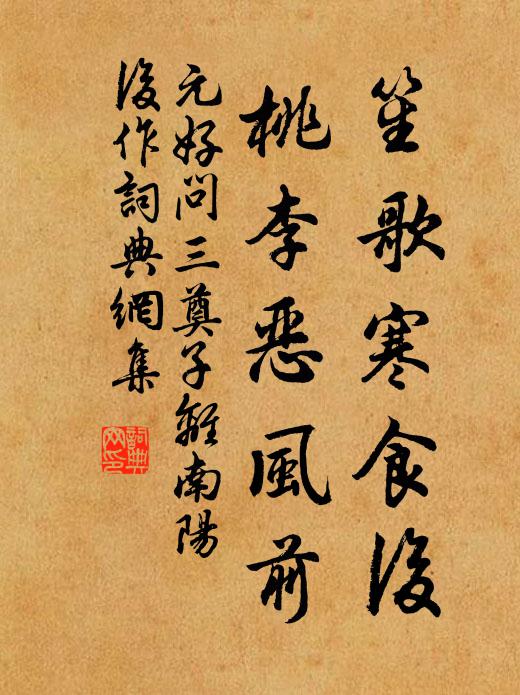 笙歌寒食後
桃李惡風前
元好問三奠子離南陽
後作詞典網集
詞典
网印